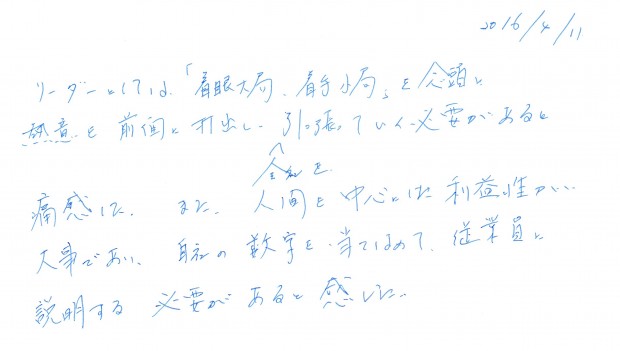 2016/4/11
リーダーとしては、「着眼大局、着手小局」を念頭に
熱意を前面に打出し引っ張っていく必要があると
全社を
痛感した。また、人間を中心にした利益性が
大事であり、自社の数字を当てはめて、従業員に
説明する必要があると感じた。